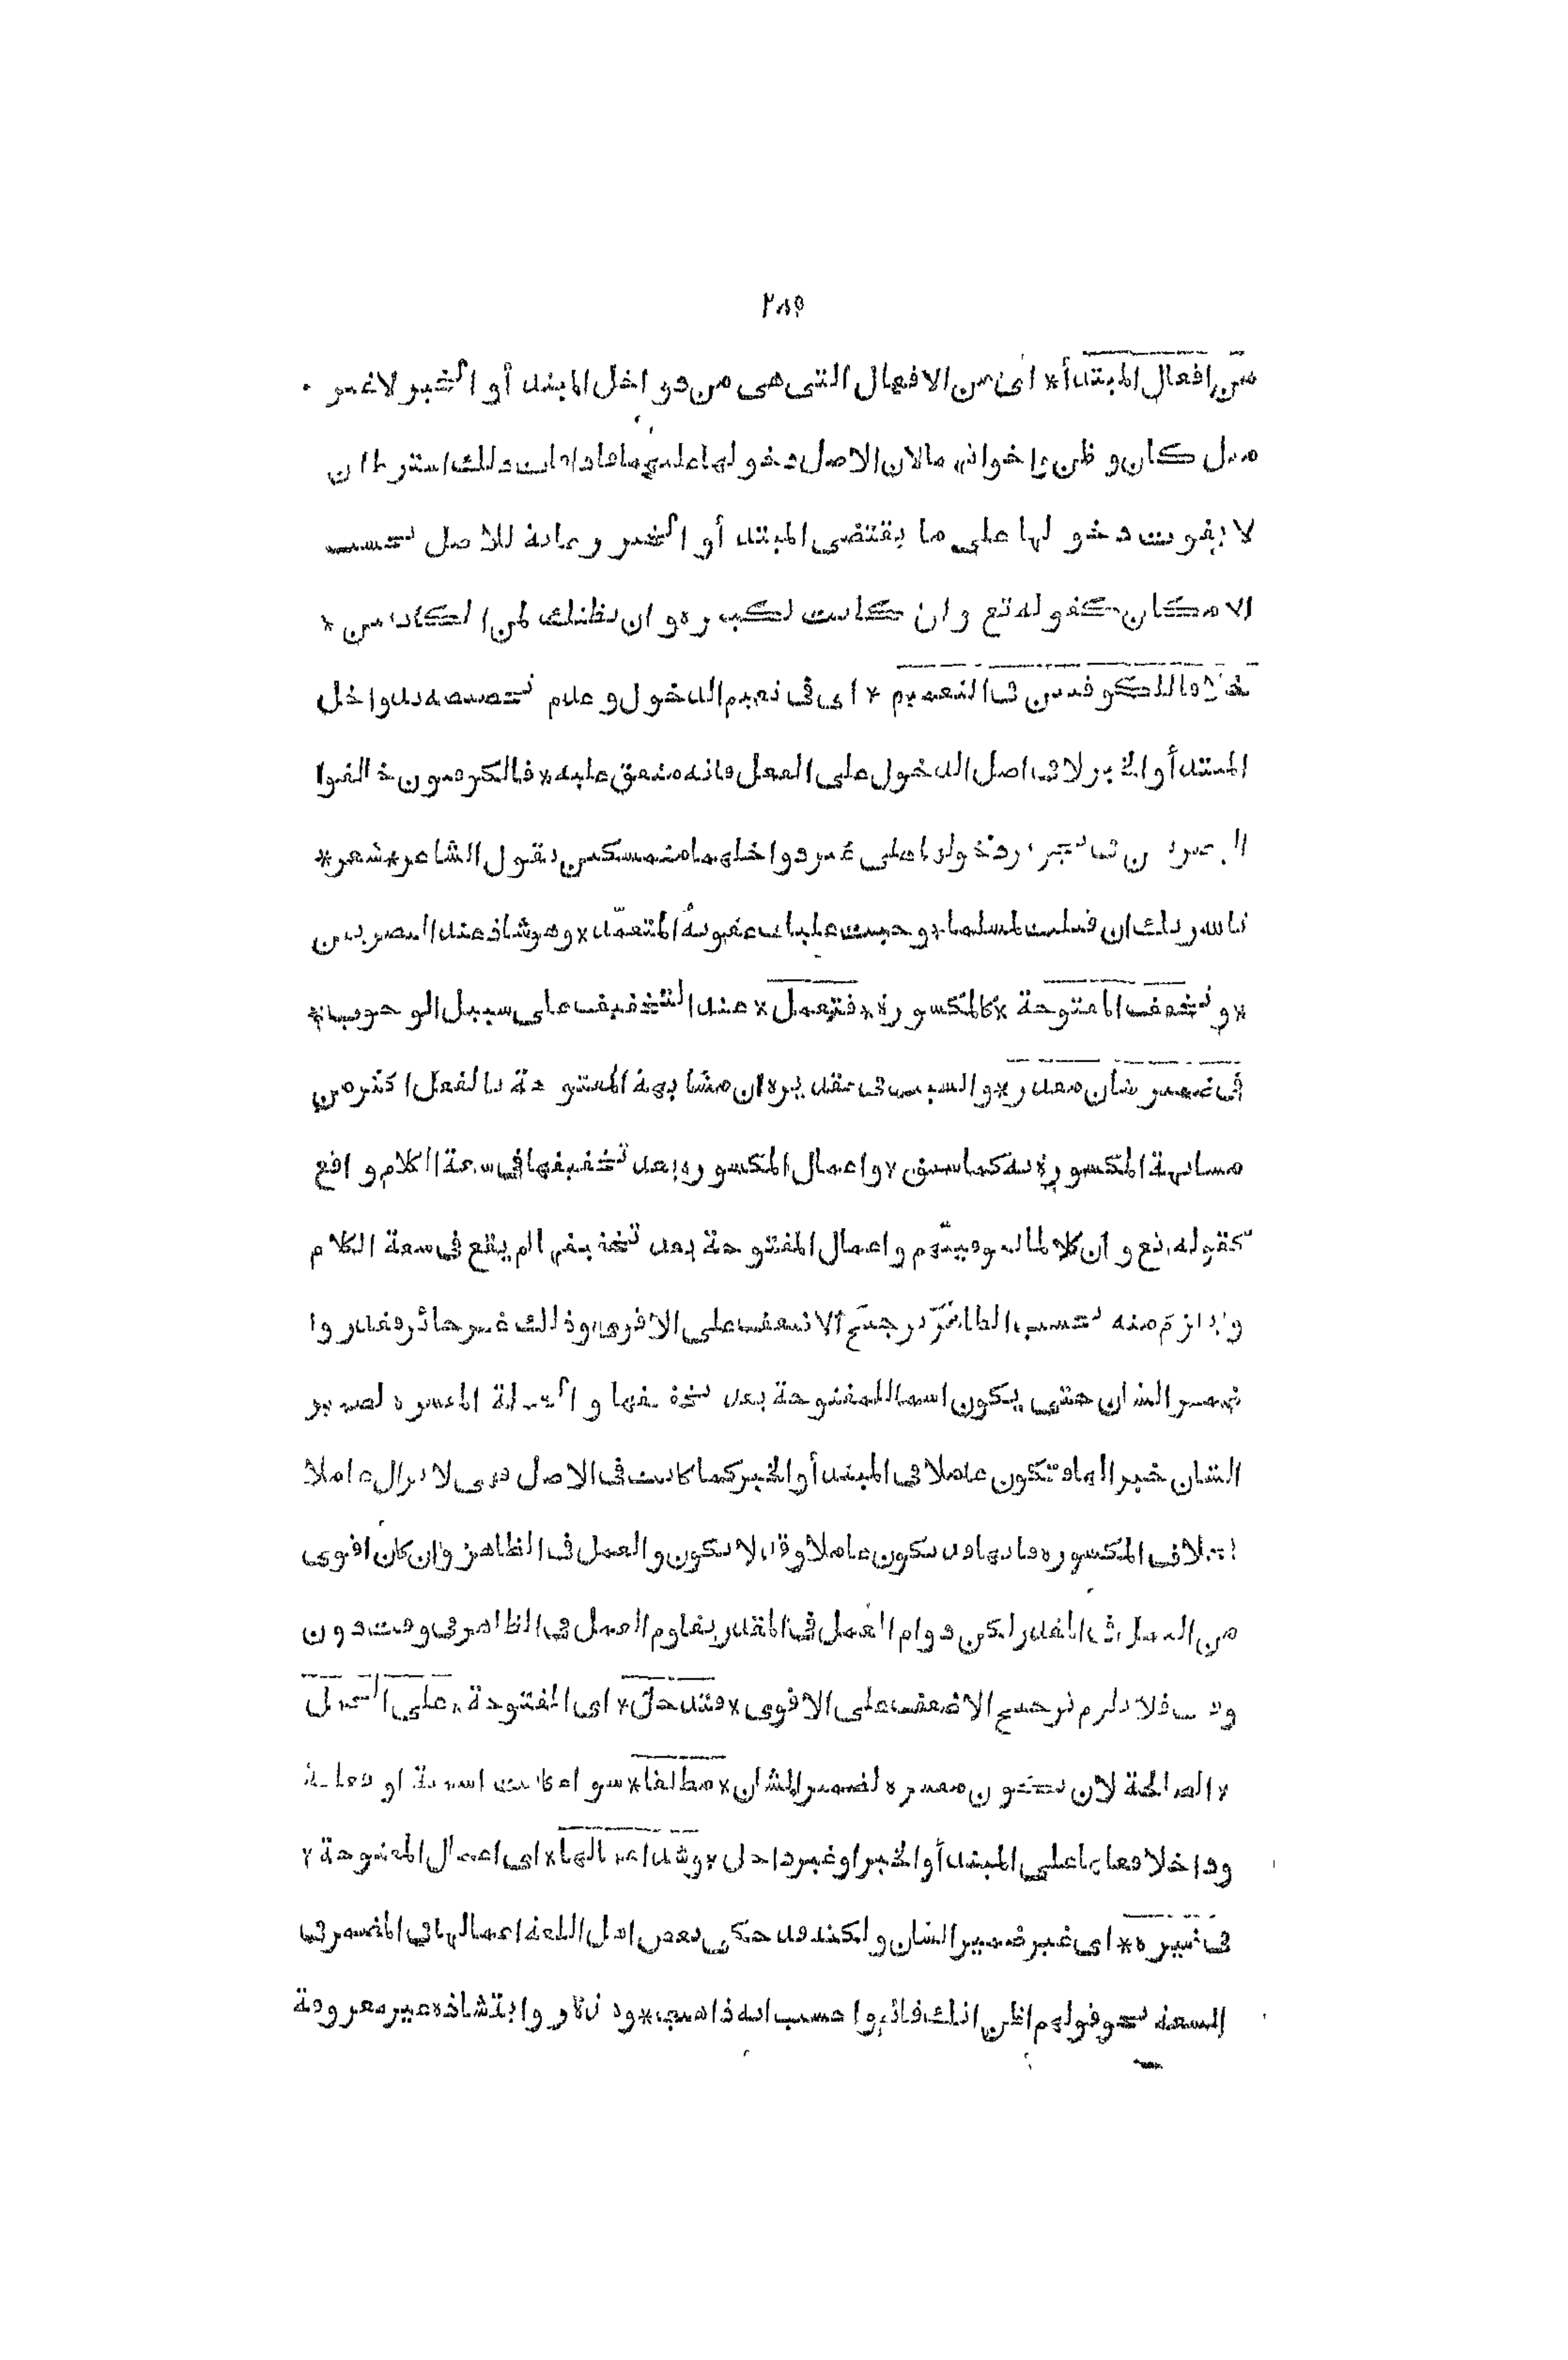 ٢٨٥
من افعال المبتدأ * اى من الافعال التى هى من دواخل المبتدأ والخبر لاغير
مثل كان وظن واخواتهما لان الاصل دخولها عليهما فاذا فات ذلك اشترط ان
لا يفوت دخولها على ما يقتضى المبتدأ والخبر رعاية للاصل بحسب
الامكان كقوله تع وان كانت لكبيرة وان نظنك لمن الكاذبين *
خلافا للكوفيين فى التعميم * اى فى تعميم الدخول وعدم تخصيصه بدواخل
المبتدأ والخبر لا فى اصل الدخول على الفعل فانه متفق عليه * فالكوفيون خالفوا
البصريين فى تجويز دخولها على غير دواخلهما متمسكين بقول الشاعر * شعر *
تالله ربك ان قتلت لمسلما * وجبت عليك عقوبة المتعمّد * وهو شاذ عند البصريين
* وتخفف المفتوحة * كالمكسورة * فتعمل * عند التخفيف على سبيل الوجوب *
فى ضمير شان مقدر * والسبب فى تقديره ان مشابهة المفتوحة بالفعل اكثر من
مشابهة المكسورة به كما سبق * واعمال المكسورة بعد تخفيفها فى سعة الكلام واقع
كقوله تع وان كلا لما ليوفينّهم واعمال المفتوحة بعد تخفيفها لم يقع فى سعة الكلام
ويلزم منه بحسب الظاهر ترجيح الاضعف على الاقوى وذلك غير جائز فقدروا
ضمير الشان حتى يكون اسما للمفتوحة بعد تخفيفها والجملة المفسرة لضمير
الشان خبرا لها فتكون عاملا فى المبتدأ والخبر كما كانت فى الاصل فهى لا تزال عاملا
بخلاف المكسورة فانها قد تكون عاملا وقد لا تكون والعمل فى الظاهر وان كان اقوى
من العمل فى المقدر لكن دوام العمل فى المقدر يقاوم العمل فى الظاهر فى وقت دون
وقت فلا يلزم ترجيح الاضعف على الاقوى * فتدخل * اى المفتوحة * على الجمل
* الصالحة لان تكون مفسرة لضمير الشان * مطلقا * سواء كانت اسمية او فعلية
وداخلا فعلها على المبتدأ والخبر او غير داخل * وشذ اعمالها * اى اعمال المفتوحة *
فى غيره * اى غير ضمير الشان ولكنه قد حكى بعض اهل اللغة اعمالها فى المضمر فى
السعة نحو قولهم اظن انك قائم واحسب انه ذاهب * وهذه رواية شاذة غير معروفة